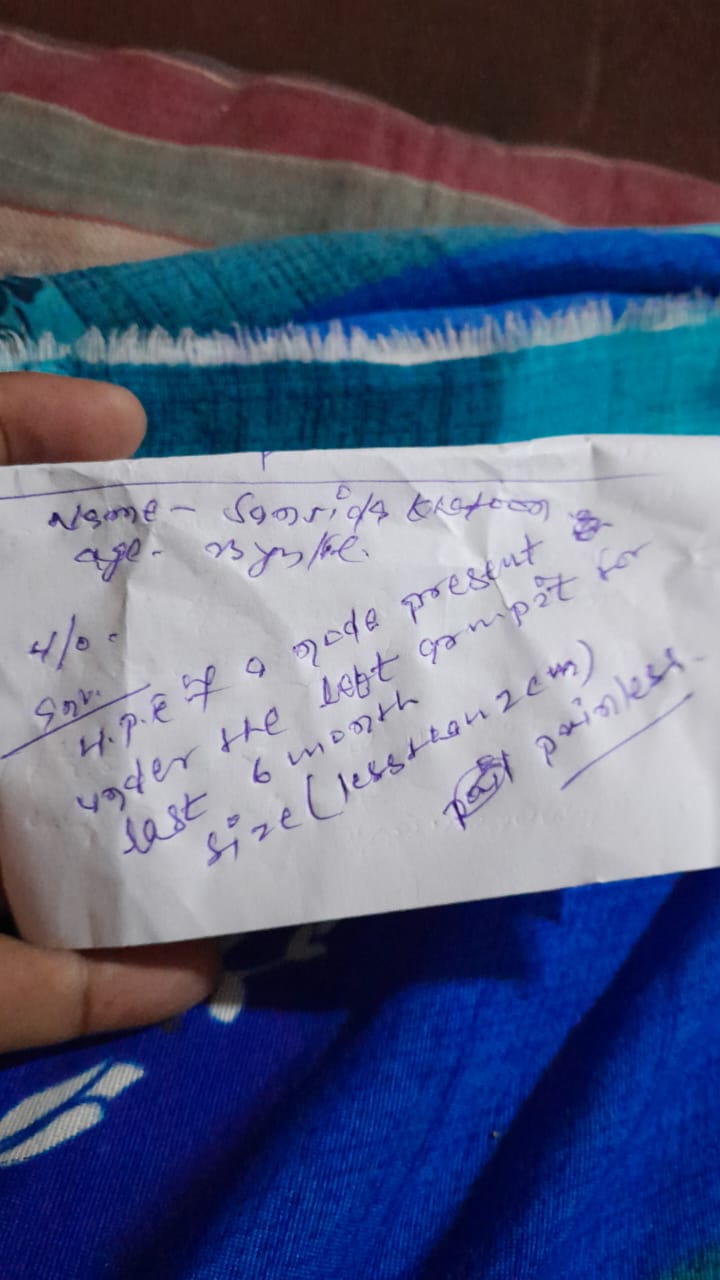 Name - Sanrida Khatoon
age - 23 yrs/fe.
H/O -
Inv.
H.P.E of a node present
under the left armpit for
last 6 month
size (less than 2cm)
painless.